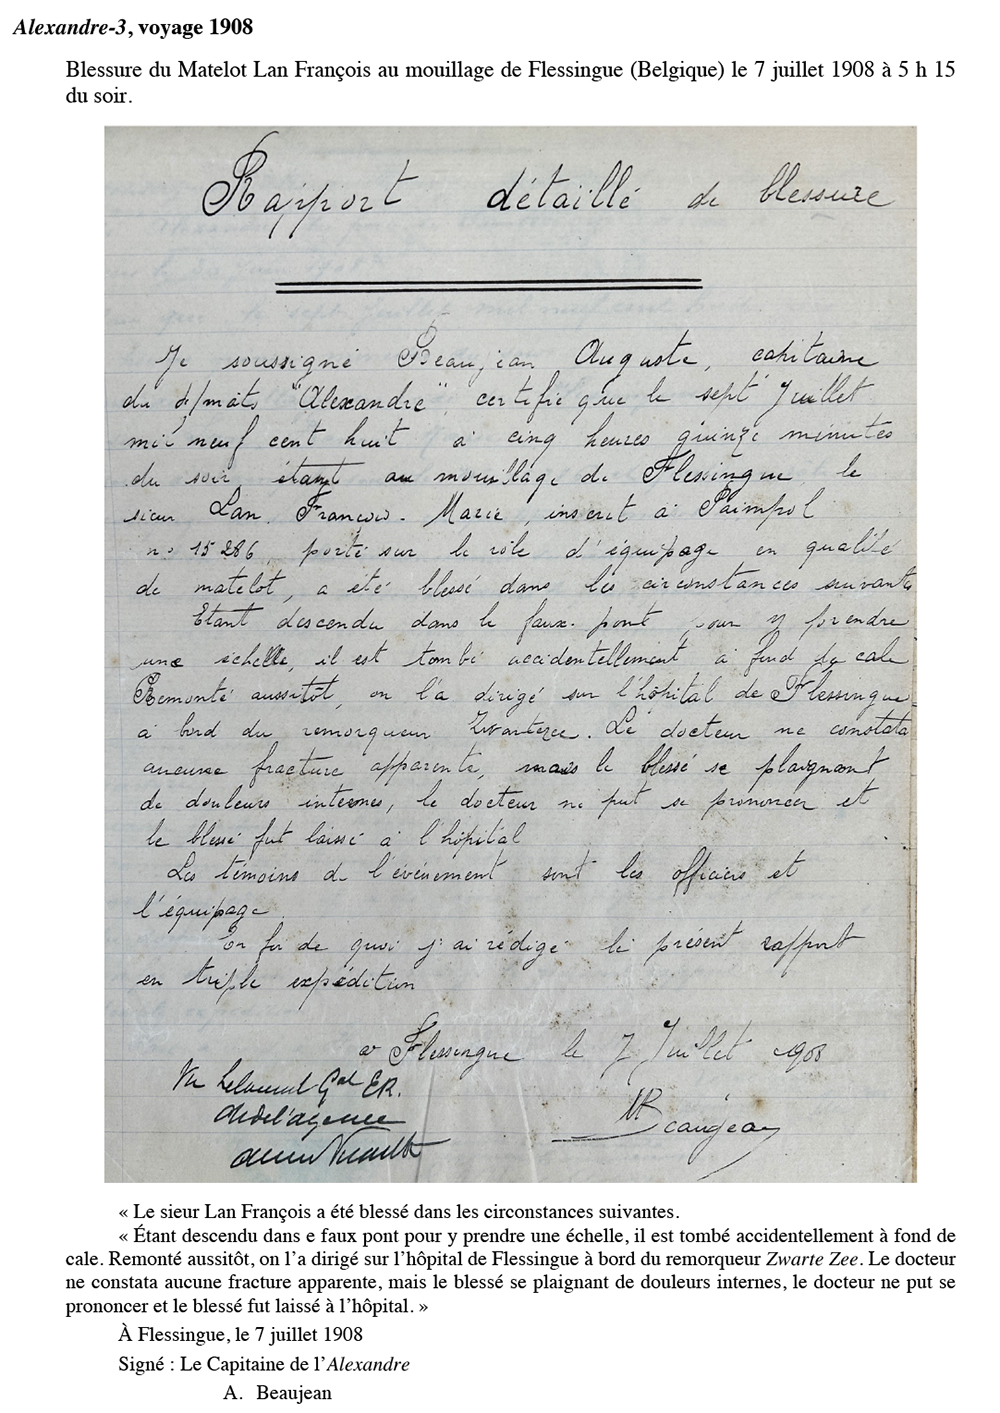 Alexandre-3, voyage 1908
Blessure du Matelot Lan François au mouillage de Flessingue (Belgique) le 7 juillet 1908 à 5 h 15
du soir.
Rapport détaillé de blessure
Je soussigné Beaujean Auguste, capitaine
du d/mâts "Alexandre", certifie que le sept Juillet
mil neuf cent huit à cinq heures quinze minutes
du soir, étant au mouillage de Flessingue, le
sieur Lan François-Marie, inscrit à Paimpol
no 15286 porté sur le rôle d'équipage en qualité
de matelot, a été blessé dans les circonstances suivantes
Etant descendu dans le faux-pont pour y prendre
une échelle, il est tombé accidentellement à fond de cale
Remonté aussitôt, on l'a dirigé sur l'hôpital de Flessingue
à bord du remorqueur Zwartezee. Le docteur ne constata
aucune fracture apparente, mais le blessé se plaignant
de douleurs internes, le docteur ne put se prononcer et
le blessé fut laissé à l'hôpital
Les témoins de l'événement sont les officiers et
l'équipage.
En foi de quoi j'ai rédigé le présent rapport
en triple expédition
a Flessingue le 7 Juillet 1908
Vu
de l'agence
Beaujean
« Le sieur Lan François a été blessé dans les circonstances suivantes.
« Étant descendu dans e faux pont pour y prendre une échelle, il est tombé accidentellement à fond de
cale. Remonté aussitôt, on l'a dirigé sur l'hôpital de Flessingue à bord du remorqueur Zwarte Zee. Le docteur
ne constata aucune fracture apparente, mais le blessé se plaignant de douleurs internes, le docteur ne put se
prononcer et le blessé fut laissé à l'hôpital. »
À Flessingue, le 7 juillet 1908
Signé : Le Capitaine de l'Alexandre
A. Beaujean